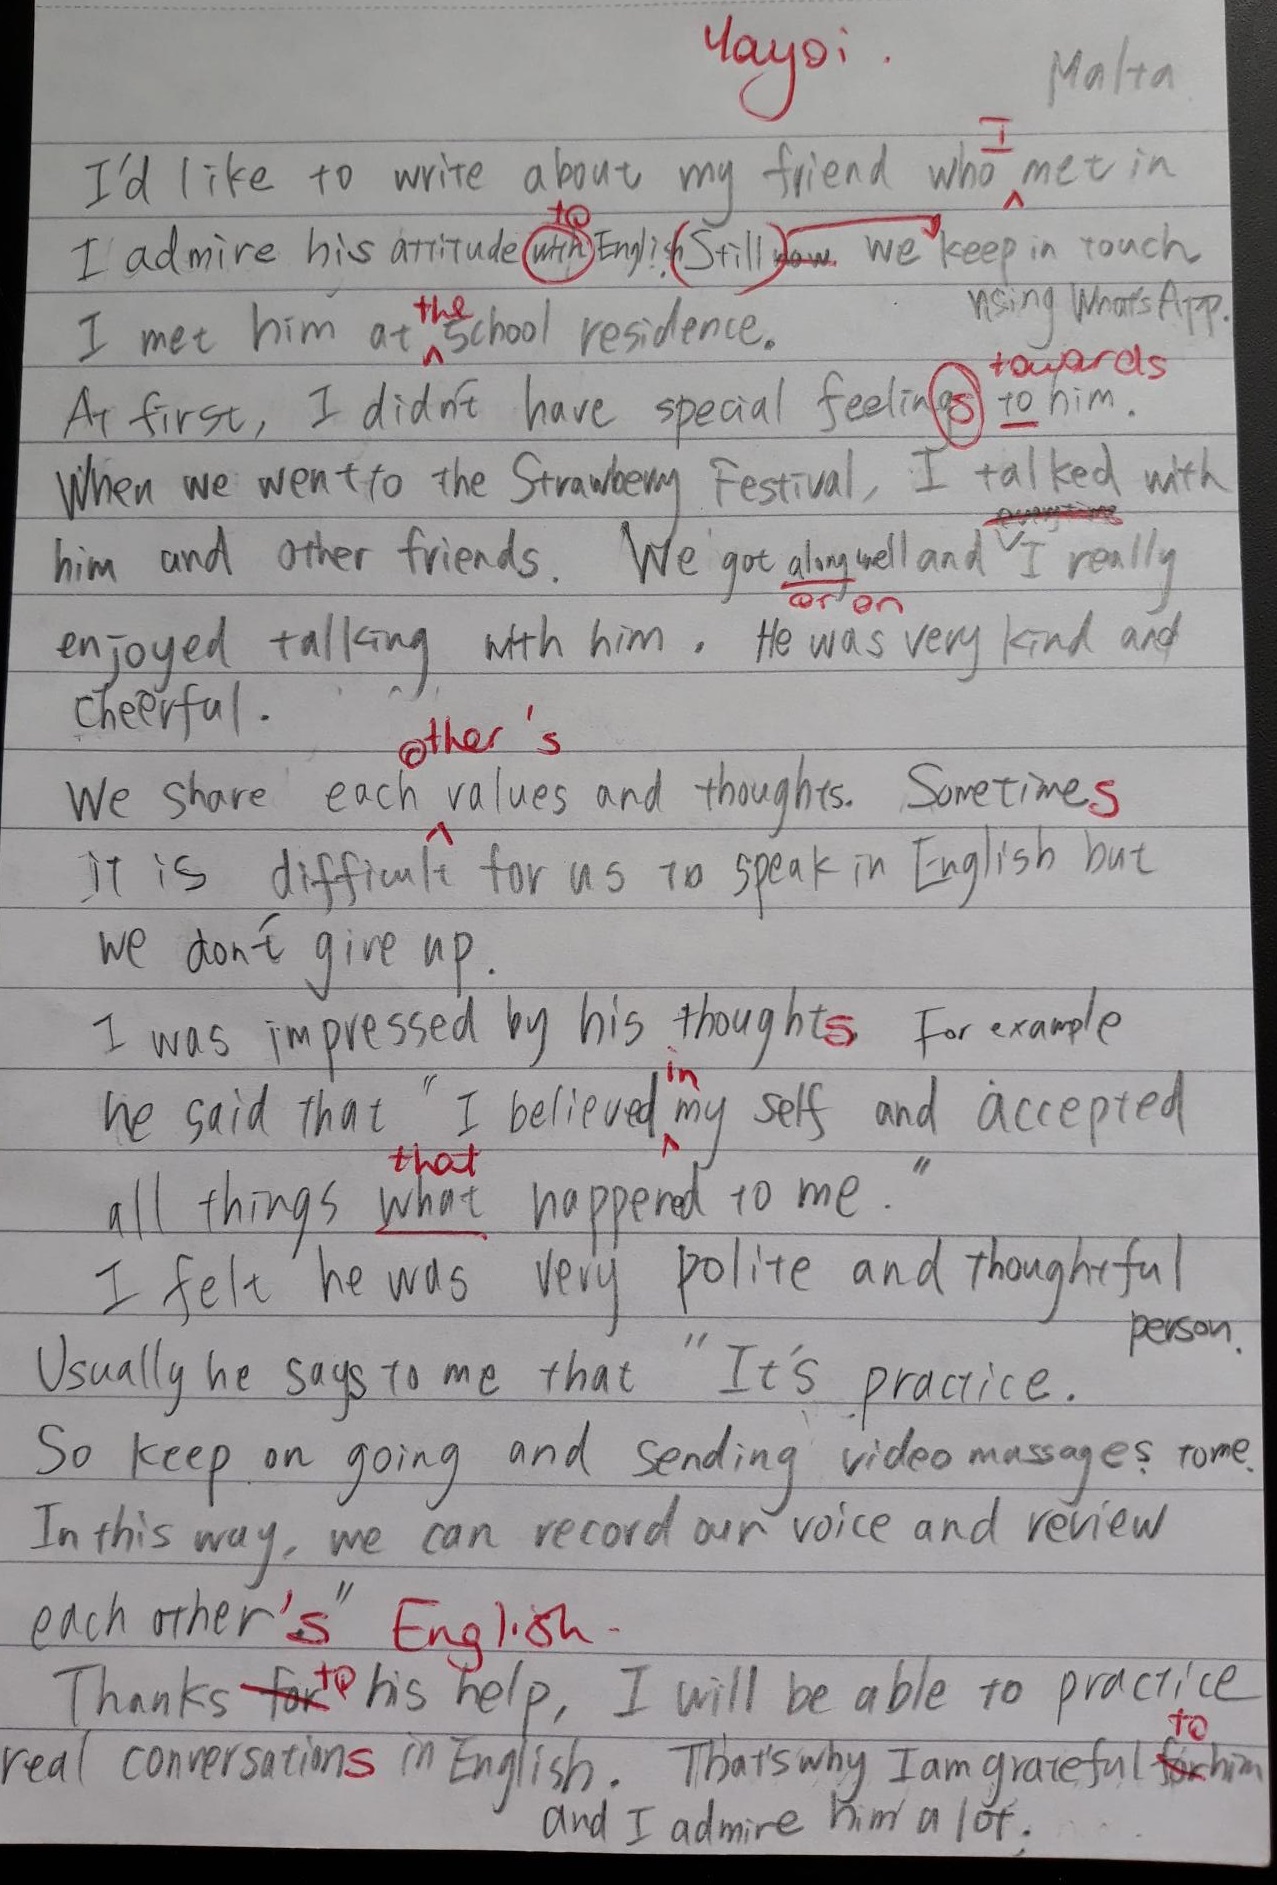 Yayoi.
Malta
I
I'd like to write about my friend who ^ met in
to
I admire his attitude with English (Still) now we keep in touch
using What'sApp.
the
I met him at ^ school residence.
towards
At first, I didn't have special feelings to him.
When we went to the Strawberry Festival, I talked with
him and other friends. We got along well and I really
or on
enjoyed talking with him. He was very kind and
cheerful.
other's
We share each ^ values and thoughts. Sometimes
it is difficult for us to speak in English but
we don't give up.
I was impressed by his thoughts For example
in
he said that "I believed ^ my self and accepted
that
all things what happened to me."
I felt he was very polite and thoughtful
person.
Usually he says to me that "It's practice.
So keep on going and sending video massages to me.
In this way, we can record our voice and review
each other's" English.
Thanks for to his help, I will be able to practice
to
real conversations in English. That's why I am grateful for him
and I admire him a lot.